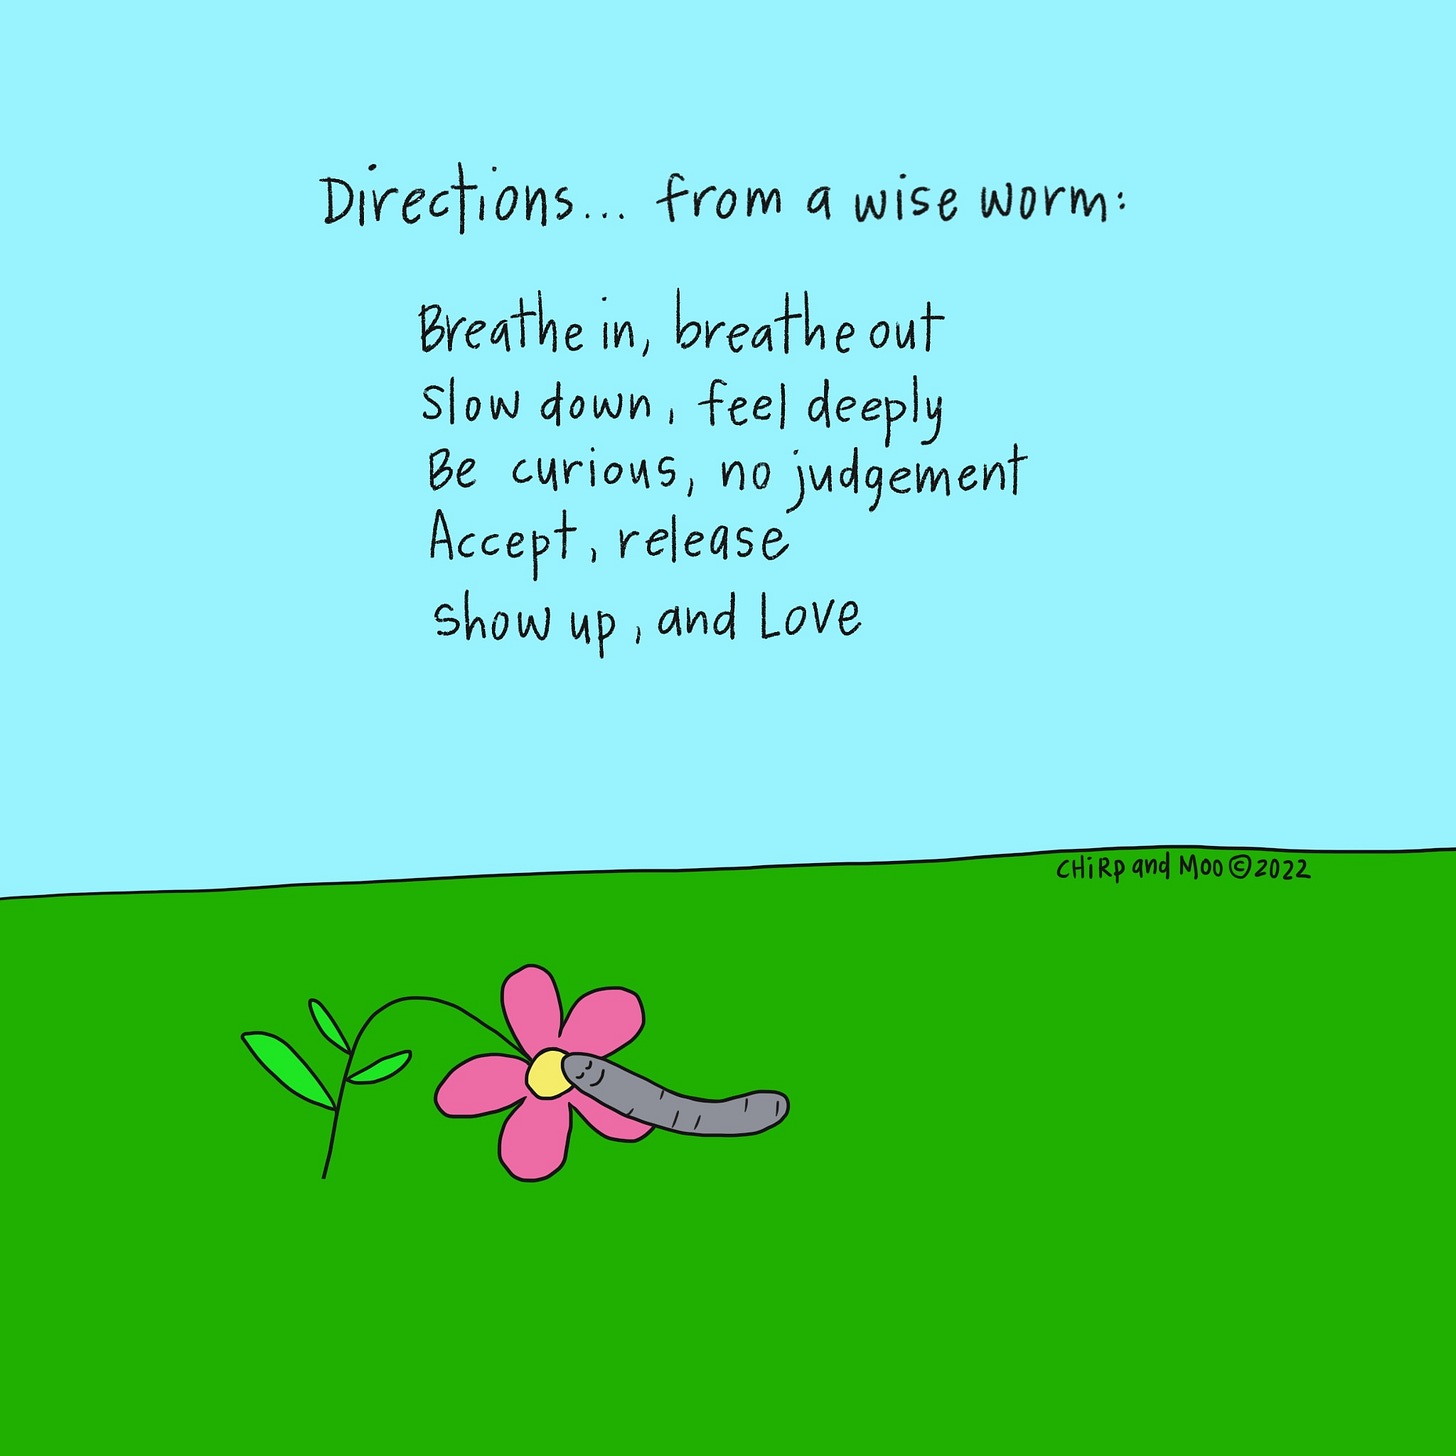 Directions... from a wise worm:
Breathe in, breathe out
Slow down, feel deeply
Be curious, no judgement
Accept, release
Show up, and Love
CHiRp and Moo ©2022